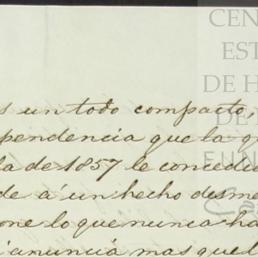 CEN
EST
DE H
DE
FUN
s un todo compacto,
pendencia que la
la de 1857 le concedie
de á un hecho desme
one lo que nunca ha
anuncia mas que l